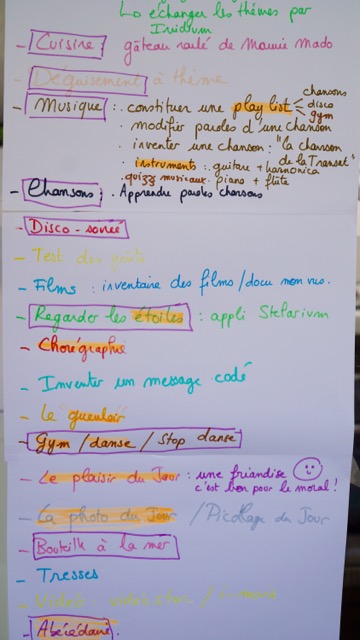 Lo échanger les thèmes par
Iridium
- Cuisine : gâteau roulé de Mamie Mado
- Déguisement à thème
- Musique : . constituer une playlist chansons
disco
gym
. modifier paroles d'une chanson
. inventer une chanson : "la chanson
de la Transat"
. instruments : guitare + harmonica
. quizz musicaux. piano + flûte
- Chansons : . Apprendre paroles chansons
- Disco - soirée
- Test des
- Films : inventaire des films/docu non vus.
- Regarder les étoiles : appli Stellarium
- Chorégraphie
- Inventer un message codé
- Le gueuloir
- Gym / danse / Stop danse
- Le plaisir du Jour : une friandise
c'est bon pour le moral !
- La photo du Jour / du Jour
- Bouteille à la mer
- Tresses
- Vidéo
- Abécédaire.